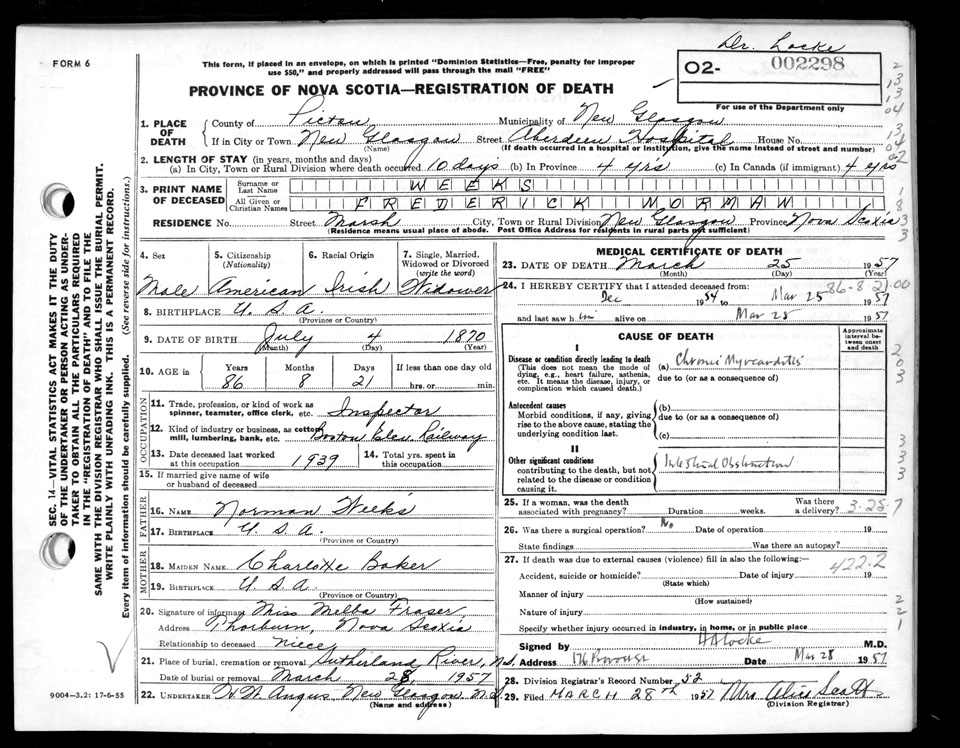 Dr. Locke
FORM 6
This form, if placed in an envelope, on which is printed "Dominion Statistics—Free, penalty for improper
use $50," and properly addressed will pass through the mail "FREE"
02- 002298
For use of the Department only
PROVINCE OF NOVA SCOTIA—REGISTRATION OF DEATH
1. PLACE OF DEATH
County of Pictou Municipality of New Glasgow
If in City or Town New Glasgow Street Aberdeen Hospital House No.
(Name) (If death occurred in a hospital or institution, give the name instead of street and number)
2. LENGTH OF STAY (in years, months and days)
(a) In City, Town or Rural Division where death occurred 10 days (b) In Province 4 yrs (c) In Canada (if immigrant) 4 yrs
3. PRINT NAME OF DECEASED
Surname or Last Name WEEKS
All Given or Christian Names FREDERICK NORMAN
RESIDENCE No. Street Marsh City, Town or Rural Division New Glasgow Province Nova Scotia
(Residence means usual place of abode. Post Office Address for residents in rural parts not sufficient)
4. Sex 5. Citizenship (Nationality) 6. Racial Origin 7. Single, Married, Widowed or Divorced (write the word)
Male American Irish Widower
8. BIRTHPLACE U.S.A.
(Province or Country)
9. DATE OF BIRTH July 4 1870
(Month) (Day) (Year)
10. AGE in Years Months Days If less than one day old
86 8 21 hrs. or min.
OCCUPATION
11. Trade, profession, or kind of work as
spinner, teamster, office clerk, etc. Inspector
12. Kind of industry or business, as cotton
mill, lumbering, bank, etc. Boston Elev. Railway
13. Date deceased last worked
at this occupation 1939
14. Total yrs. spent in
this occupation
15. If married give name of wife
or husband of deceased
FATHER
16. NAME Norman Weeks
17. BIRTHPLACE U.S.A.
(Province or Country)
MOTHER
18. MAIDEN NAME Charlotte Baker
19. BIRTHPLACE U.S.A.
(Province or Country)
20. Signature of informant Miss Melba Fraser
Address Thorburn, Nova Scotia
Relationship to deceased niece
21. Place of burial, cremation or removal Sutherland River, N.S.
Date of burial or removal March 28, 1957
22. UNDERTAKER H W Angus, New Glasgow, N.S.
(Name and address)
MEDICAL CERTIFICATE OF DEATH
23. DATE OF DEATH March 25 1957
(Month) (Day) (Year)
86-8-21-00
24. I HEREBY CERTIFY that I attended deceased from:
Dec 1954 to Mar 25 1957
and last saw him alive on Mar 25 1957
CAUSE OF DEATH
Approximate interval between onset and death
I
Disease or condition directly leading to death
(This does not mean the mode of
dying, e.g., heart failure, asthenia,
etc. It means the disease, injury, or
complication which caused death.)
(a) Chronic Myocarditis
due to (or as a consequence of)
Antecedent causes
Morbid conditions, if any, giving
rise to the above cause, stating the
underlying condition last.
(b)
due to (or as a consequence of)
(c)
II
Other significant conditions
contributing to the death, but not
related to the disease or condition
causing it.
Intestinal Obstruction
25. If a woman, was the death
associated with pregnancy? Duration weeks. Was there a delivery?
3-25-7
26. Was there a surgical operation? No Date of operation 19
State findings Was there an autopsy?
27. If death was due to external causes (violence) fill in also the following:—
422.2
Accident, suicide or homicide? Date of injury 19
(State which)
Manner of injury
(How sustained)
Nature of injury
Specify whether injury occurred in industry, in home, or in public place
Signed by HA Locke M.D.
Address 176 Date Mar 28 1957
28. Division Registrar's Record Number 52
29. Filed MARCH 28TH 1957 Mrs. Alice Scott
(Division Registrar)
SEC. 14—VITAL STATISTICS ACT MAKES IT THE DUTY
OF THE UNDERTAKER OR PERSON ACTING AS UNDER-
TAKER TO OBTAIN ALL THE PARTICULARS REQUIRED
IN THE "REGISTRATION OF DEATH" AND TO FILE THE
SAME WITH THE DIVISION REGISTRAR WHO SHALL ISSUE THE BURIAL PERMIT.
WRITE PLAINLY WITH UNFADING INK. THIS IS A PERMANENT RECORD.
Every item of information should be carefully supplied. (See reverse side for instructions.)
9004—3.2: 17-6-55